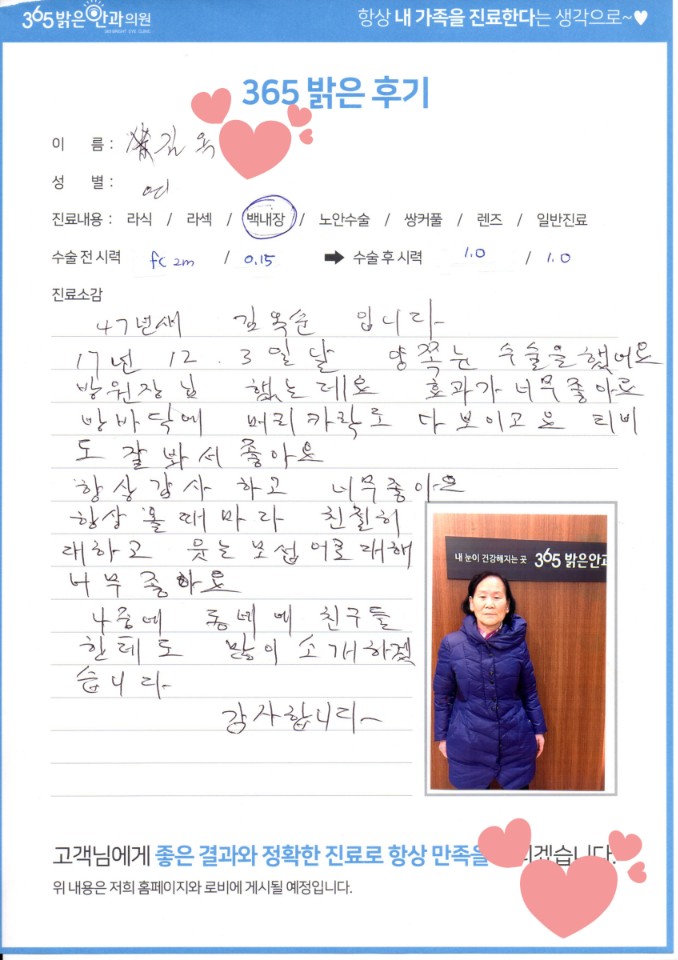 365밝은안과의원
365 BRIGHT EYE CLINIC
항상 내 가족을 진료한다는 생각으로~♥
365 밝은 후기
이 름 : 김옥
성 별 : 여
진료내용 : 라식 / 라섹 / 백내장 / 노안수술 / 쌍커풀 / 렌즈 / 일반진료
수술 전 시력 fc 2m / 0.15 ➡ 수술 후 시력 1.0 / 1.0
진료소감
47년새 김옥순 입니다
17년 12.3일달 양쪽눈 수술을 했어요
방원장님 했는데요 효과가 너무좋아요
방바닥에 머리카락도 다보이고요 티비
도 잘봐서 좋아요
항상감사하고 너무좋아요
항상 올때마다 친절히
대하고 웃는모섭 어로대해
너무좋아요
4중에 동네에 친구들
한테도 많이 소개하겠
습니다
감사합니다
내 눈이 건강해지는 곳 365 밝은안과
고객님에게 좋은 결과와 정확한 진료로 항상 만족을 겠습니다.
위 내용은 저희 홈페이지와 로비에 게시될 예정입니다.